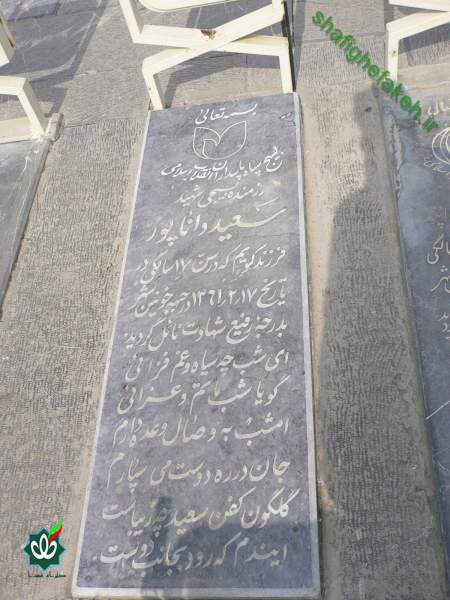 بسمه تعالی
بسیج سپاه پاسداران انقلاب اسلامی
رزمنده بسیجی شهید
سعید دانا پور
فرزند کریم که در سن ۱۷ سالگی در
تاریخ ۱۳۶۱/۲/۱۷ در جبهه خونین شهر
بدرجهٔ رفیع شهادت نائل گردید
ای شب چه سیاه و غم فزائی
گویا شب ماتم و عزائی
امشب به وصال وعده دارم
جان در ره دوست می سپارم
گلگون کفن سعید چه زیباست
ایندم که رود بجانب دوست
shafighefakeh.ir